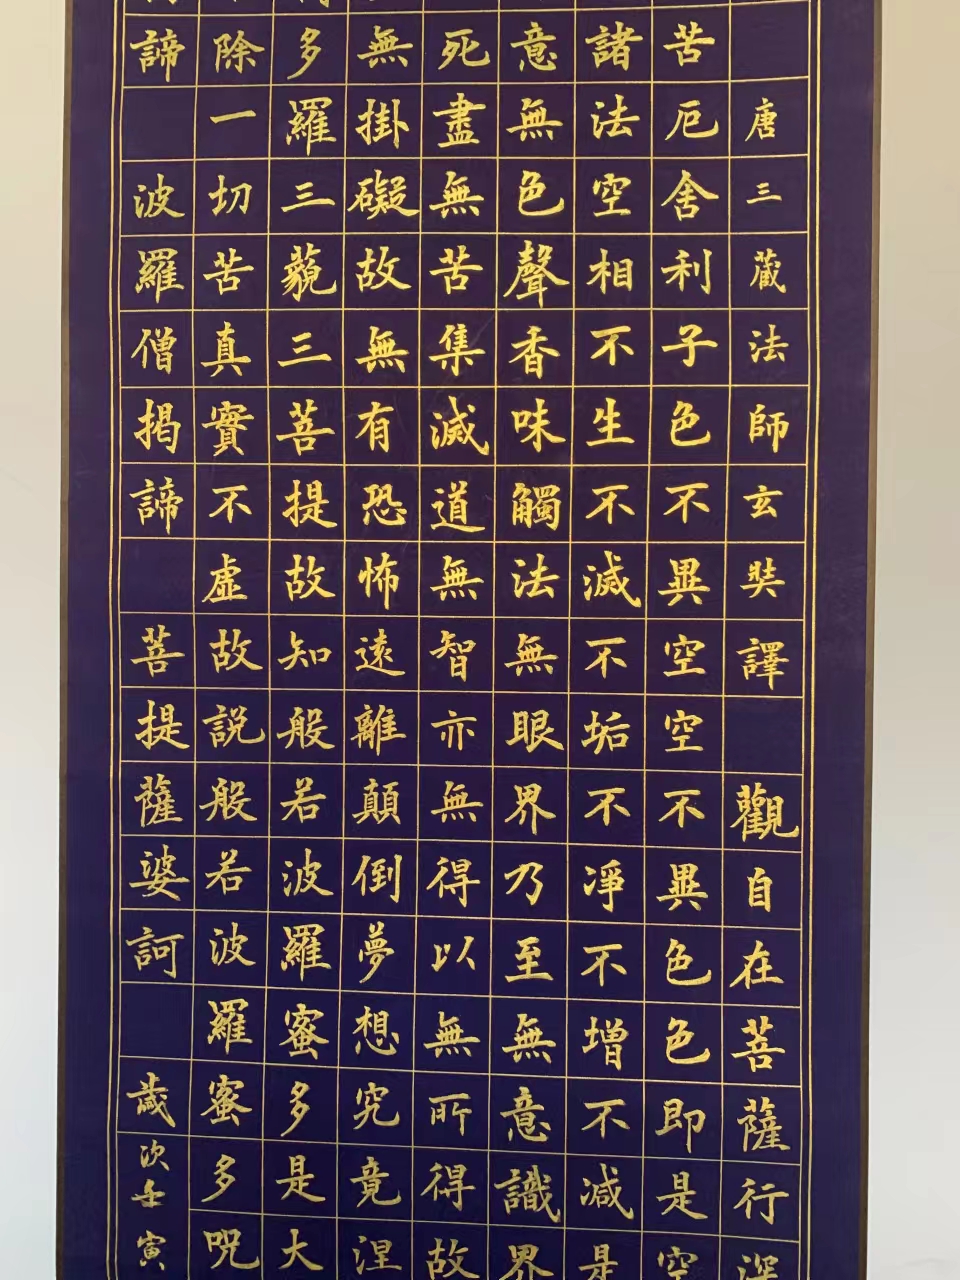 唐三藏法師玄奘譯 觀自在菩薩行深
苦厄舍利子色不異空空不異色色即是空
諸法空相不生不滅不垢不淨不增不減是
意無色聲香味觸法無眼界乃至無意識界
死盡無苦集滅道無智亦無得以無所得故
無掛礙故無有恐怖遠離顛倒夢想究竟涅
多羅三藐三菩提故知般若波羅蜜多是大
除一切苦真實不虛故說般若波羅蜜多咒
諦 波羅僧揭諦 菩提薩婆訶 歲次壬寅